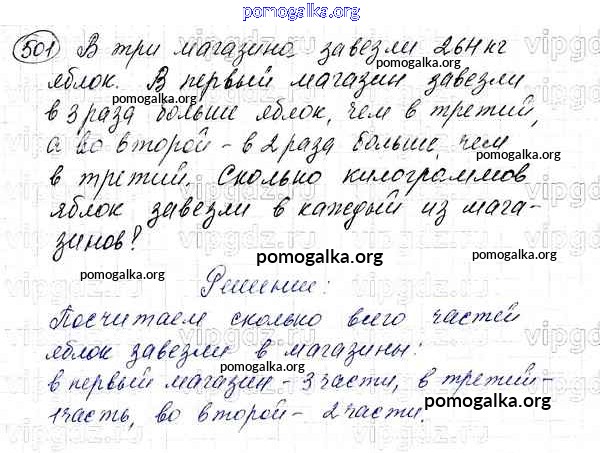 pomogalka.org
501 В три магазина завезли 264 кг
яблок. В первый магазин завезли
pomogalka.org
в 3 раза больше яблок, чем в третий,
а во второй - в 2 раза больше, чем
pomogalka.org
в третий. Сколько килограммов
яблок завезли в каждый из мага-
зинов?
pomogalka.org
pomogalka.org
Решение:
pomogalka.org
Посчитаем сколько всего частей
яблок завезли в магазины:
pomogalka.org
в первый магазин - 3 части, в третий -
pomogalka.org
1 часть, во второй - 2 части.
pomogalka.org